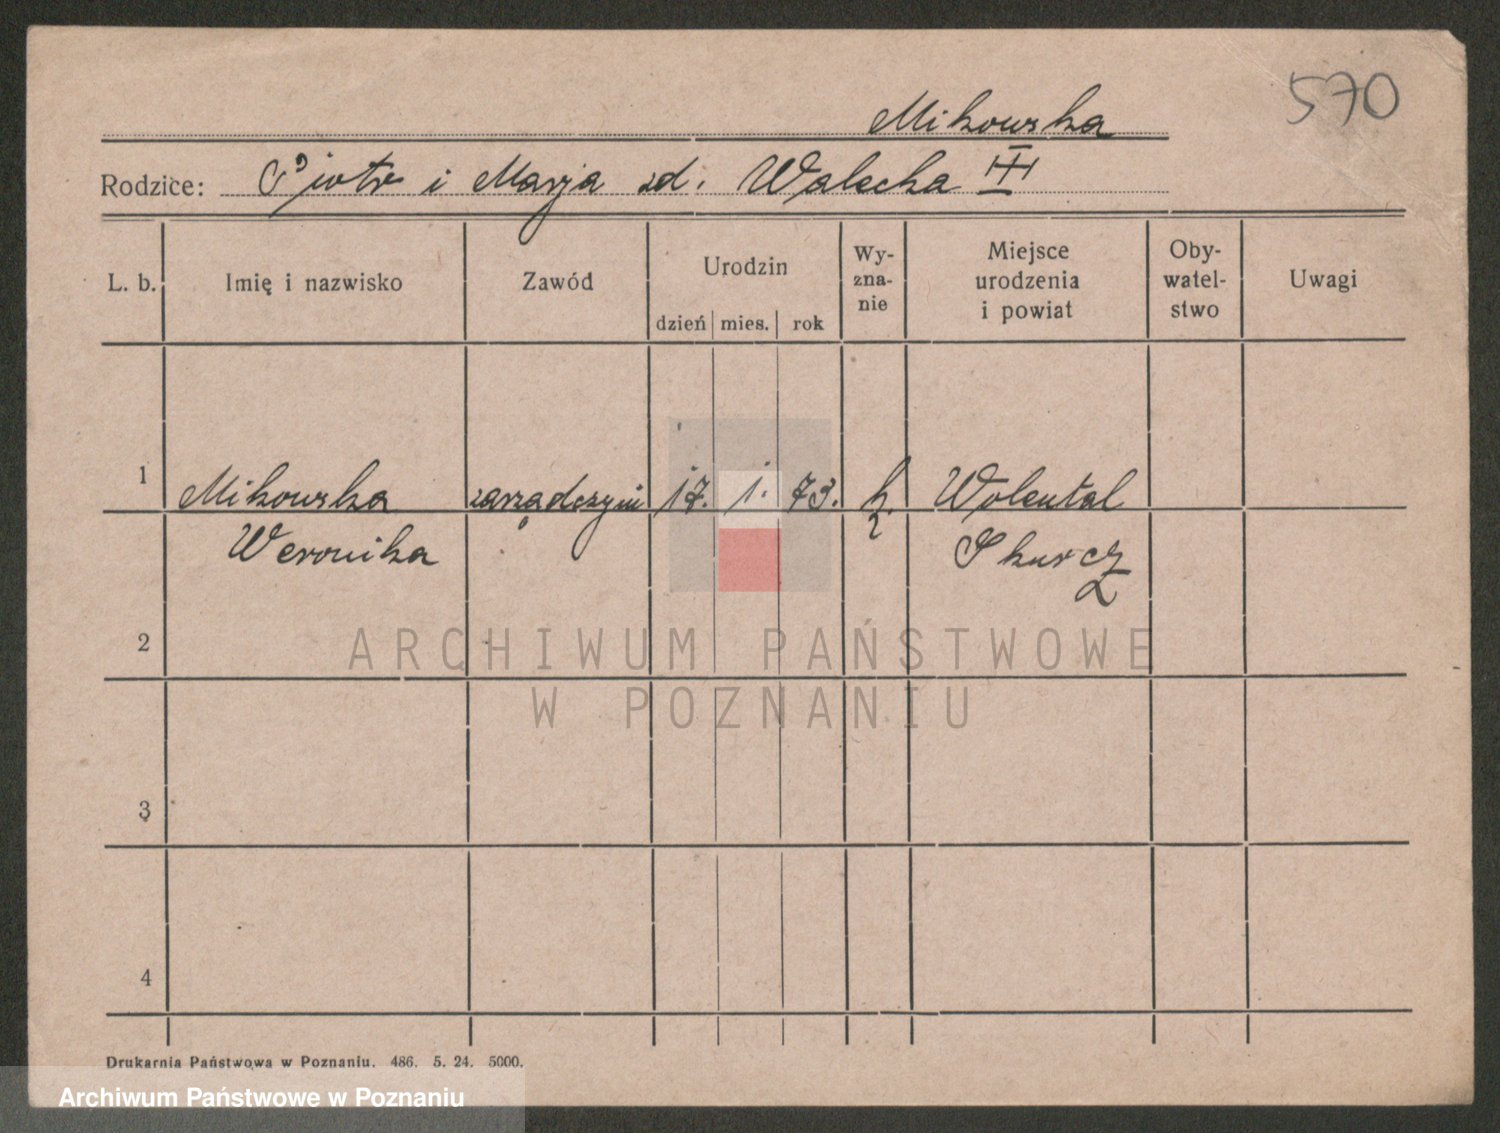 570
Mikowska
Rodzice: Piotr i Marja zd. Walecka III
L. b. Imię i nazwisko Zawód Urodzin dzień mies. rok Wy-zna-nie Miejsce urodzenia i powiat Oby-watel-stwo Uwagi
1 Mikowska zarządczyni 17. 1. 73. k. Wolental
Weronika Skurcz
2
ARCHIWUM PAŃSTWOWE
W POZNANIU
3
4
Drukarnia Państwowa w Poznaniu. 486. 5. 24. 5000.
Archiwum Państwowe w Poznaniu